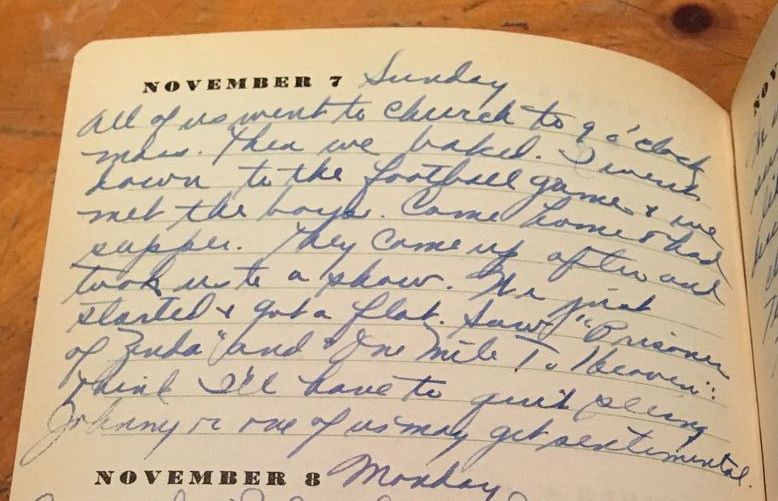 NOVEMBER 7 Sunday
All of us went to church to 9 o'clock
mass. Then we baked. I went
down to the football game & we
met the boys. Came home & had
supper. They came up after and
took us to a show. We just
started & got a flat. Saw "Prisoner
of Zenda" and "One Mile To Heaven".
think I'll have to quit seeing
Johnny or one of us may get sentimental.
NOVEMBER 8 Monday
NOV